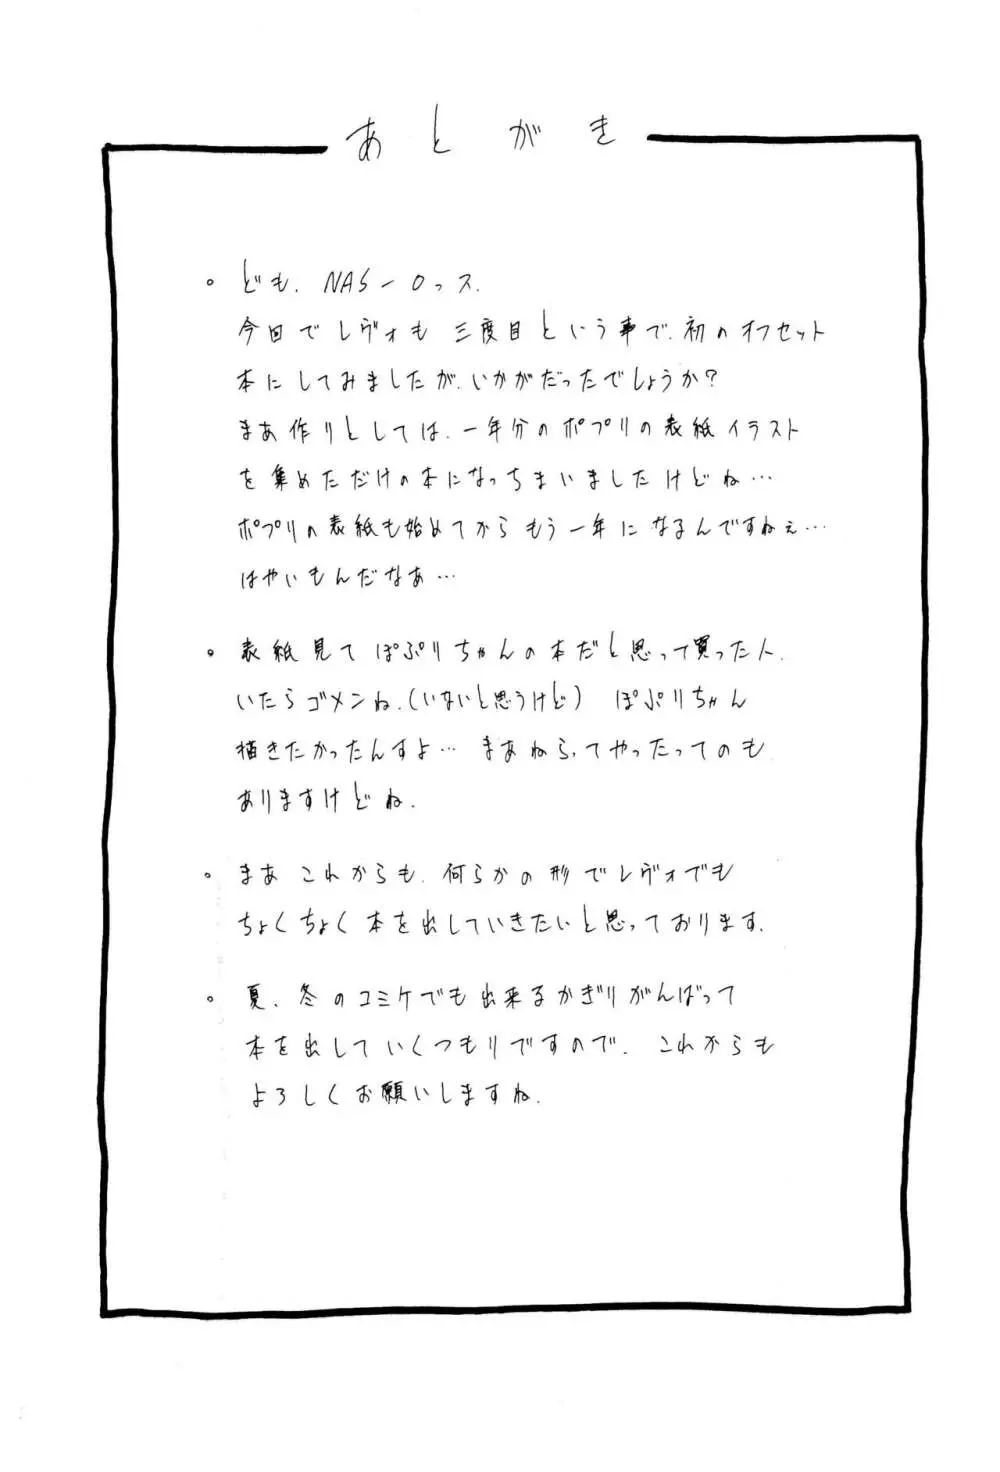 あとがき
。ども、NAS-Oっス、
今回でレヴォも三度目という事で、初のオフセット
本にしてみましたが、いかがだったでしょうか?
まあ作りとしては、一年分のポプリの表紙イラスト
を集めただけの本になっちまいましたけどね…
ポプリの表紙も始めてからもう一年になるんですねぇ…
はやいもんだなあ…
。表紙見てぽぷりちゃんの本だと思って買った人、
いたらゴメンね、(いないと思うけど) ぽぷりちゃん
描きたかったんすよ… まあねらってやったってのも
ありますけどね、
。まあ これからも、何らかの形でレヴォでも
ちょくちょく本を出していきたいと思っております、
。夏、冬のコミケでも出来るかぎりがんばって
本を出していくつもりですので、これからも
よろしくお願いしますね、